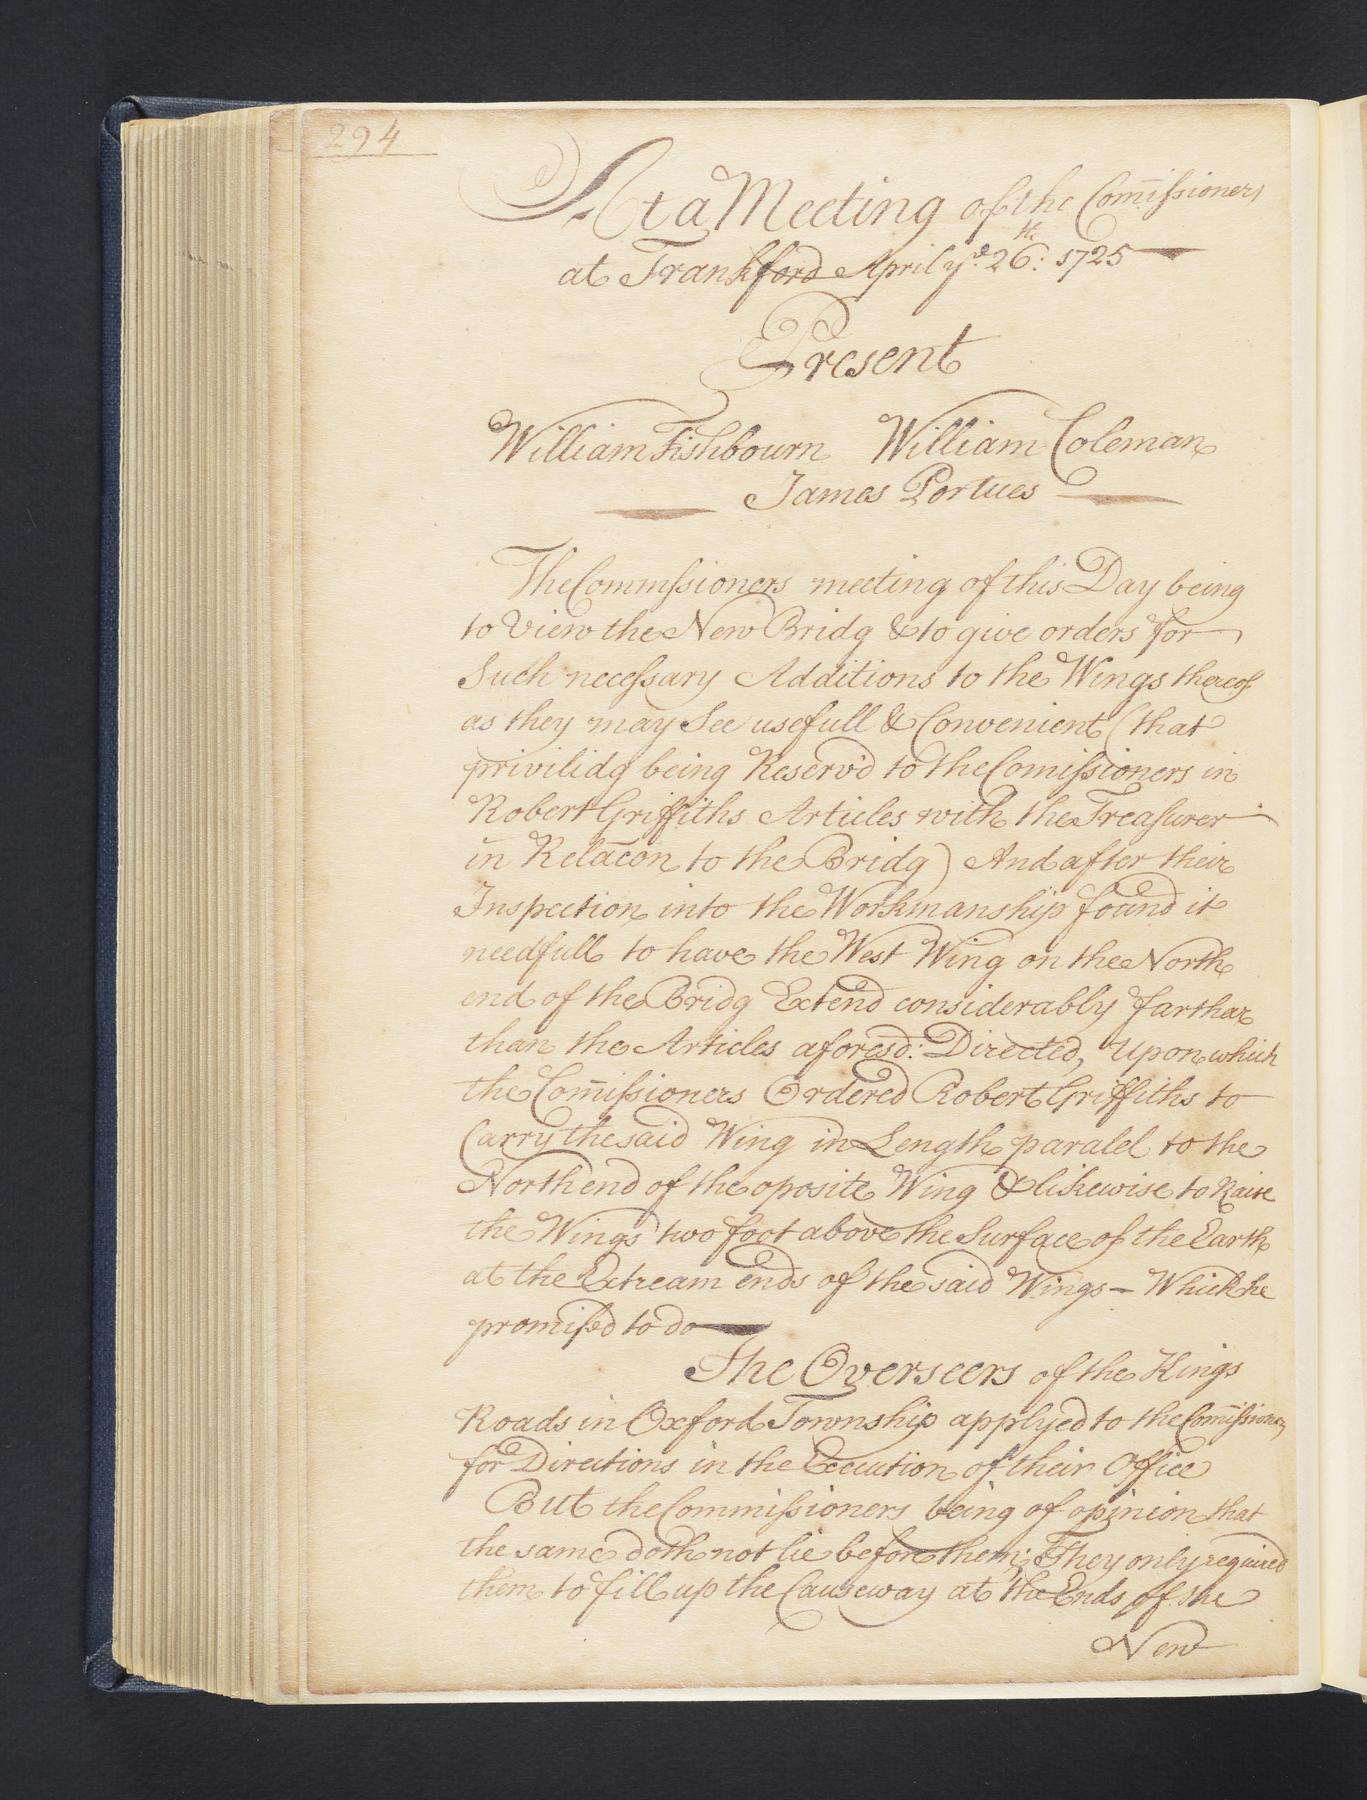 294
At a Meeting of the Com̄issioners
at Frankford April yᵉ. 26ᵗʰ: 1725
Present
William Fishbourn William Coleman
James Portues
The Commssioners meeting of this Day being
to View the New Bridg & to give orders for
Such necessary Additions to the Wings thereof
as they may See usefull & Convenient (that
privilidg being Reserv'd to the Comissioners in
Robert Griffiths Articles with the Treasurer
in Relac̄on to the Bridg) And after their
Inspection into the Workmanship found it
needfull to have the West Wing on the North
end of the Bridg Extend considerably farthar
than the Articles aforesd: Directed, Upon which
the Com̄issioners Ordered Robert Griffiths to
Carry the said Wing in Length paralel to the
North end of the oposite Wing & likewise to Raise
the Wings two foot above the Surface of the Earth
at the Extream ends of the said Wings - Which he
promised to do
The Overseers of the Kings
Roads in Oxford Township applyed to the Com̄issioners
for Directions in the Execution of their Office
But the Commissioners being of opinion that
the same doth not lie before them; They only required
them to fill up the Causeway at the Ends of the
New